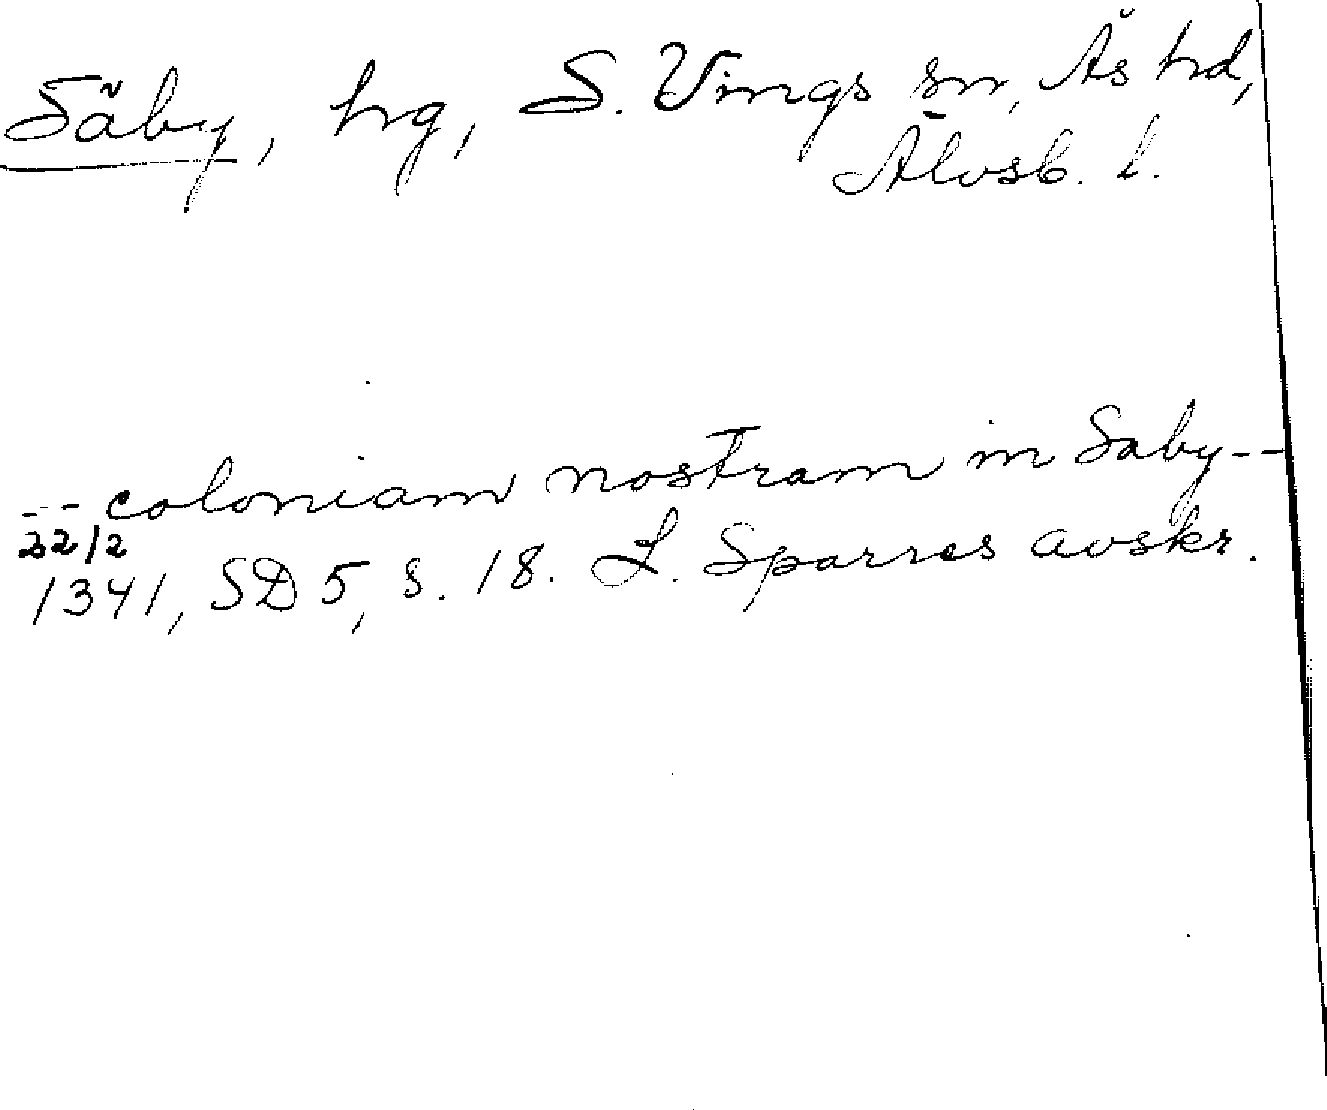 Säby, hg, S. Vings sn, Ås hd,
Älvsb. l.
-- coloniam nostram in Saby --
22/2
1341, SD 5, s. 18. L. Sparres avskr.